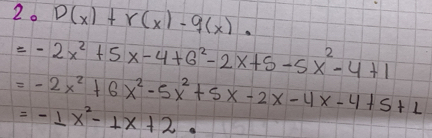 2. P(x) + r(x) - q(x).
= - 2x² + 5x - 4 + 6² - 2x + 5 - 5x² - 4 + 1
= - 2x² + 6x² - 5x² + 5x - 2x - 4x - 4 + 5 + 1
= - 1x² - 1x + 2.